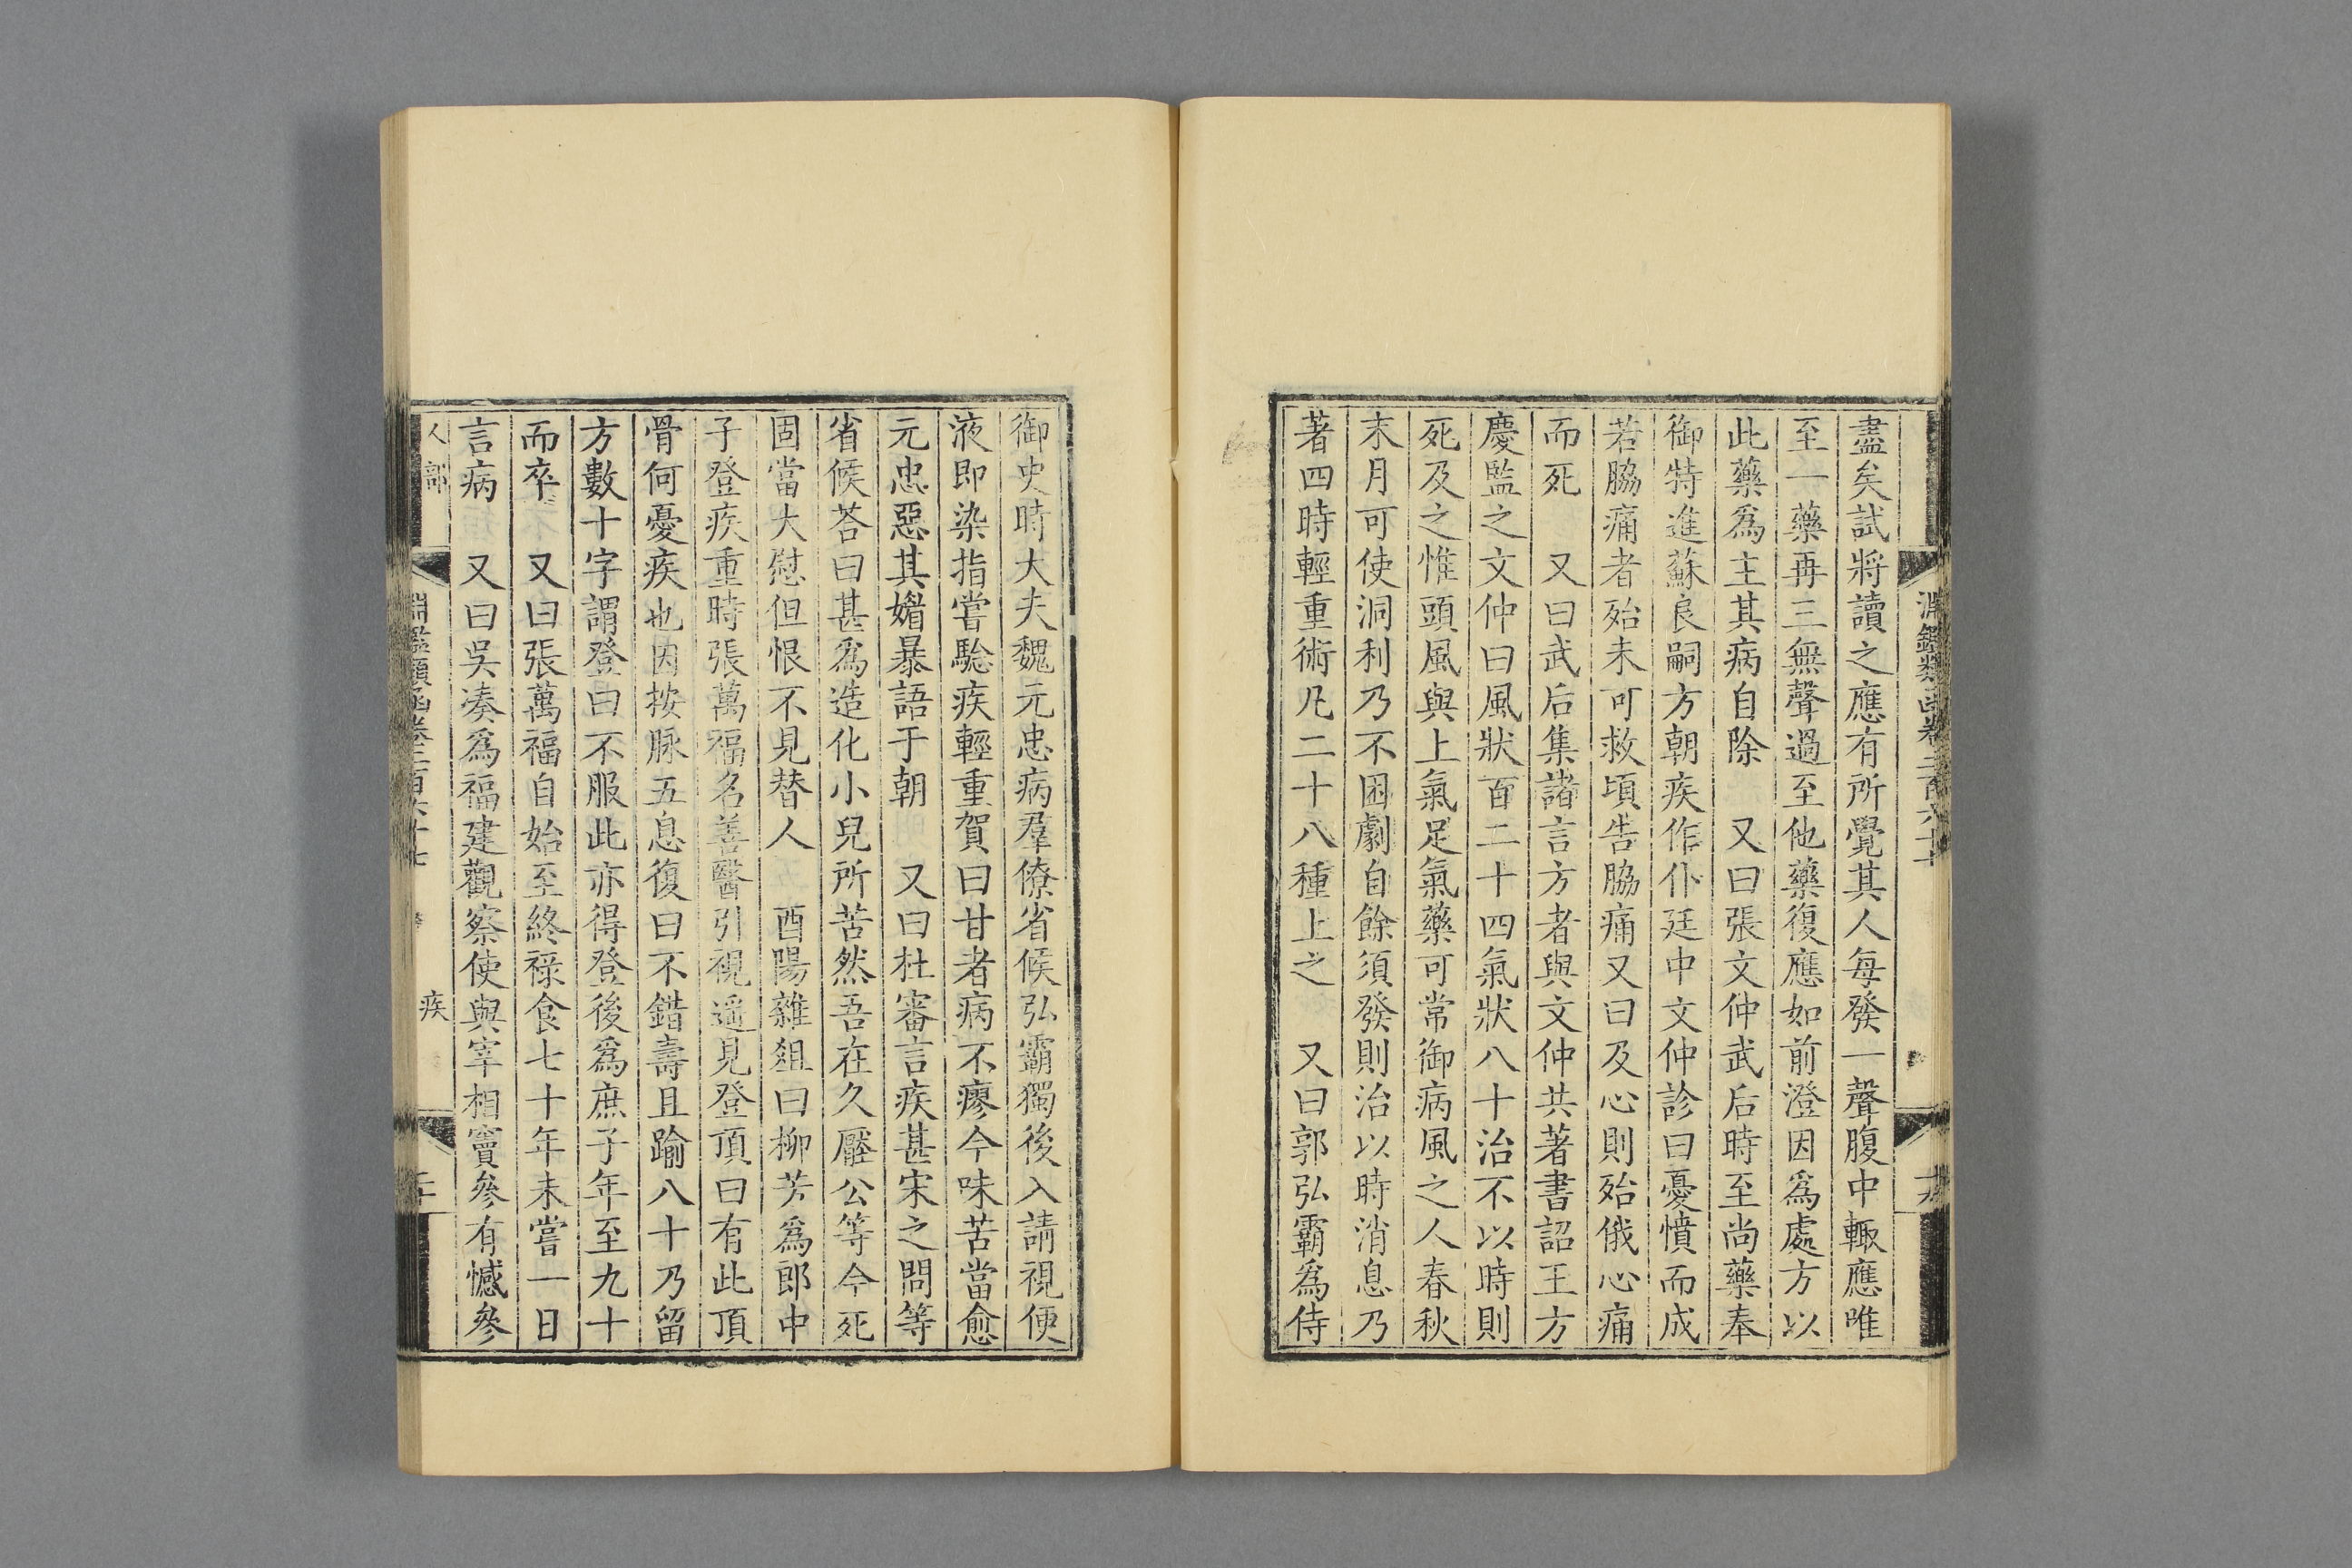 淵鑑類函卷二百六十七
盡矣試將讀之應有所覺其人每發一聲腹中輒應唯
至一藥再三無聲過至他藥復應如前澄因爲處方以
此藥爲主其病自除　又曰張文仲武后時至尚藥奉
御特進蘇良嗣方朝疾作仆廷中文仲診曰憂憤而成
若脇痛者殆未可救頃告脇痛又曰及心則殆俄心痛
而死　又曰武后集諸言方者與文仲共著書詔王方
慶監之文仲曰風狀百二十四氣狀八十治不以時則
死及之惟頭風與上氣足氣藥可常御病風之人春秋
末月可使洞利乃不困劇自餘須發則治以時消息乃
著四時輕重術凡二十八種上之　又曰郭弘霸爲侍
御史時大夫魏元忠病羣僚省候弘霸獨後入請視便
液即染指嘗驗疾輕重賀曰甘者病不瘳今味苦當愈
元忠惡其媚暴語于朝　又曰杜審言疾甚宋之問等
省候荅曰甚爲造化小兒所苦然吾在久壓公等今死
固當大慰但恨不見替人　酉陽雜俎曰柳芳爲郎中
子登疾重時張萬福名善醫引視遥見登頂曰有此頂
骨何憂疾也因按脉五息復曰不錯壽且踰八十乃留
方數十字謂登曰不服此亦得登後爲庶子年至九十
而卒　又曰張萬福自始至終祿食七十年未嘗一日
言病　又曰吳湊爲福建觀察使與宰相竇參有憾參
人部　淵鑑類函卷二百六十七　疾　二十